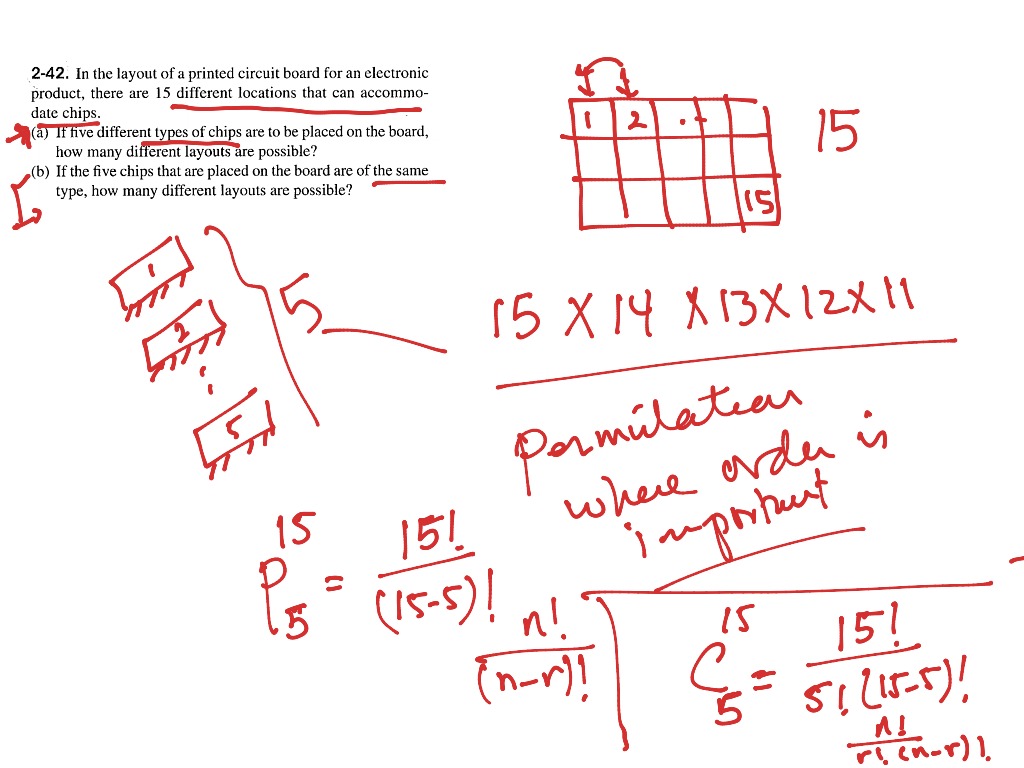 2-42. In the layout of a printed circuit board for an electronic
product, there are 15 different locations that can accommo-
date chips.
(a) If five different types of chips are to be placed on the board,
how many different layouts are possible?
(b) If the five chips that are placed on the board are of the same
type, how many different layouts are possible?
1 2 . .
15
15
1
2
5
5
15 X 14 X 13 X 12 X 11
Permutation
where order is
important
15
P = 15! / (15-5)!
5
n! / (n-r)!
15
C = 15! / 5! (15-5)!
5
n! / r! (n-r)!